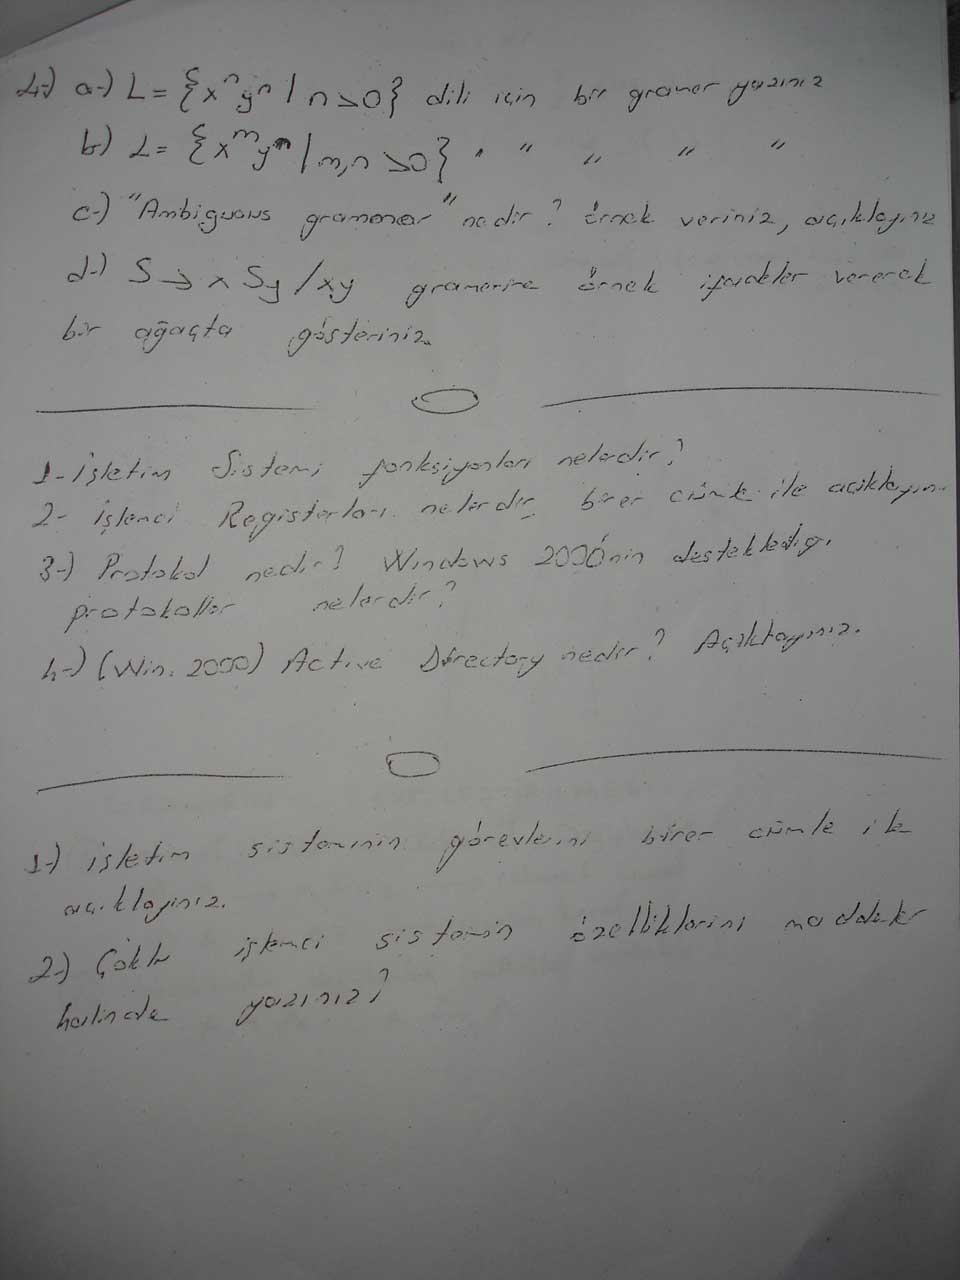 4-) a-) L = {xⁿyⁿ | n>0} dili için bir gramer yazınız
b-) L = {xᵐyⁿ | m,n >0} " " " " "
c-) "Ambiguous grammer" nedir? Örnek veriniz, açıklayınız
d-) S → x Sy / xy gramerine örnek ifadeler vererek
bir ağaçta gösteriniz.
1- İşletim Sistemi fonksiyonları nelerdir?
2- İşlemci Registerları nelerdir, birer cümle ile açıklayın.
3-) Protokol nedir? Windows 2000'nin desteklediği
protokoller nelerdir?
4-) (Win. 2000) Active Directory nedir? Açıklayınız.
1-) işletim sisteminin görevlerini birer cümle ile
açıklayınız.
2-) Çoklu işlemci sistemin özelliklerini maddeler
halinde yazınız?